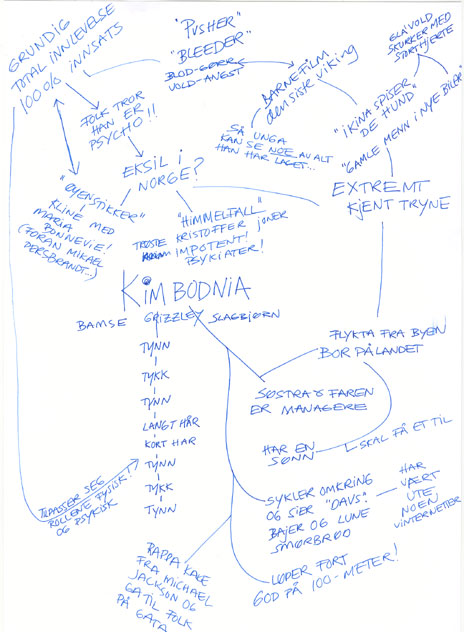 GRUNDIG
TOTAL INNLEVELSE
100% INNSATS
"PUSHER"
"BLEEDER"
BLOD-GØRR
VOLD-ANGST
BARNEFILM
den siste viking
SÅ UNGA
KAN SE NOE AV ALT
HAN HAR LAGET...
GLA I VOLD
SKURKER MED
STORT HJERTE
"I KINA SPISER
DE HUND"
"GAMLE MENN I NYE BILAR"
FOLK TROR
HAN ER
PSYCHO!!
EKSIL I
NORGE?
EXTREMT
KJENT TRYNE
"ØYENSTIKKER"
KLINE MED
MARIA
BONNEVIE!
(FORAN MIKAEL
PERSBRANDT...)
"HIMMELFALL"
TRØSTE KRISTOFFER JONER
IMPOTENT!
PSYKIATER!
KIM BODNIA
BAMSE GRIZZLEY SLAGBJØRN
TYNN
TYKK
TYNN
LANGT HÅR
KORT HAR
TYNN
TYKK
TYNN
TILPASSER SEG
ROLLENE FYSISK!
OG PSYKISK
FLYKTA FRA BYEN
BOR PÅ LANDET
SØSTRA & FAREN
ER MANAGERE
HAR EN
SØNN
SKAL FÅ ET TIL
SYKLER OMKRING
OG SIER "DAVS".
BAJER OG LUNE
SMØRBRØD
HAR
VÆRT
UTE
NOEN
VINTERNETTER
LØBER FORT
GOD PÅ 100-METER!
RAPPA KAKE
FRA MICHAEL
JACKSON OG
GA TIL FOLK
PÅ GATA